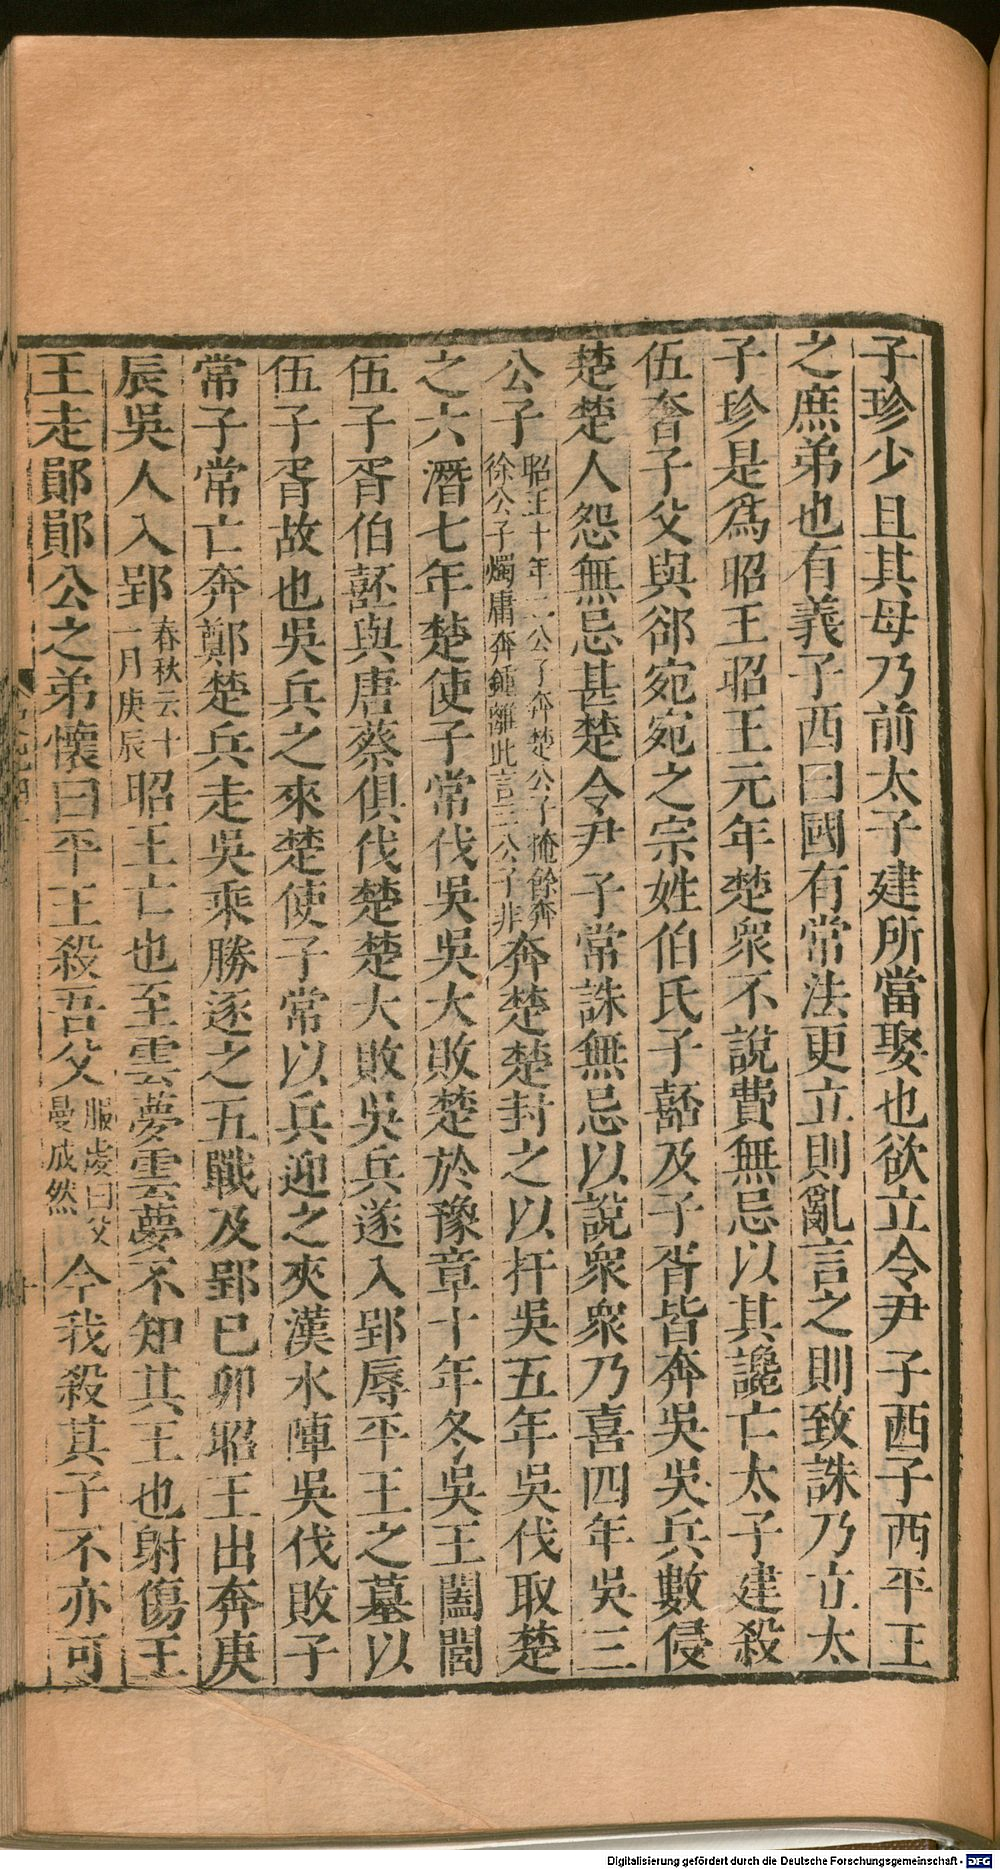 子珍少且其母乃前太子建所當娶也欲立令尹子西子西平王
之庶弟也有義子西曰國有常法更立則亂言之則致誅乃立太
子珍是爲昭王昭王元年楚衆不說費無忌以其讒亡太子建殺
伍奢子父與郤宛宛之宗姓伯氏子嚭及子胥皆奔吳吳兵數侵
楚楚人怨無忌甚楚令尹子常誅無忌以說衆衆乃喜四年吳三
公子昭王十年二公子奔楚公子掩餘奔徐公子燭庸奔鍾離此言三公子非奔楚楚封之以扞吳五年吳伐取楚
之六潛七年楚使子常伐吳吳大敗楚於豫章十年冬吳王闔閭
伍子胥伯嚭與唐蔡俱伐楚楚大敗吳兵遂入郢辱平王之墓以
伍子胥故也吳兵之來楚使子常以兵迎之夾漢水陣吳伐敗子
常子常亡奔鄭楚兵走吳乘勝逐之五戰及郢已卯昭王出奔庚
辰吳人入郢春秋云十一月庚辰昭王亡也至雲夢雲夢不知其王也射傷王
王走鄖鄖公之弟懷曰平王殺吾父服虔曰父曼成然今我殺其子不亦可
Digitalisierung gefördert durch die Deutsche Forschungsgemeinschaft - DFG